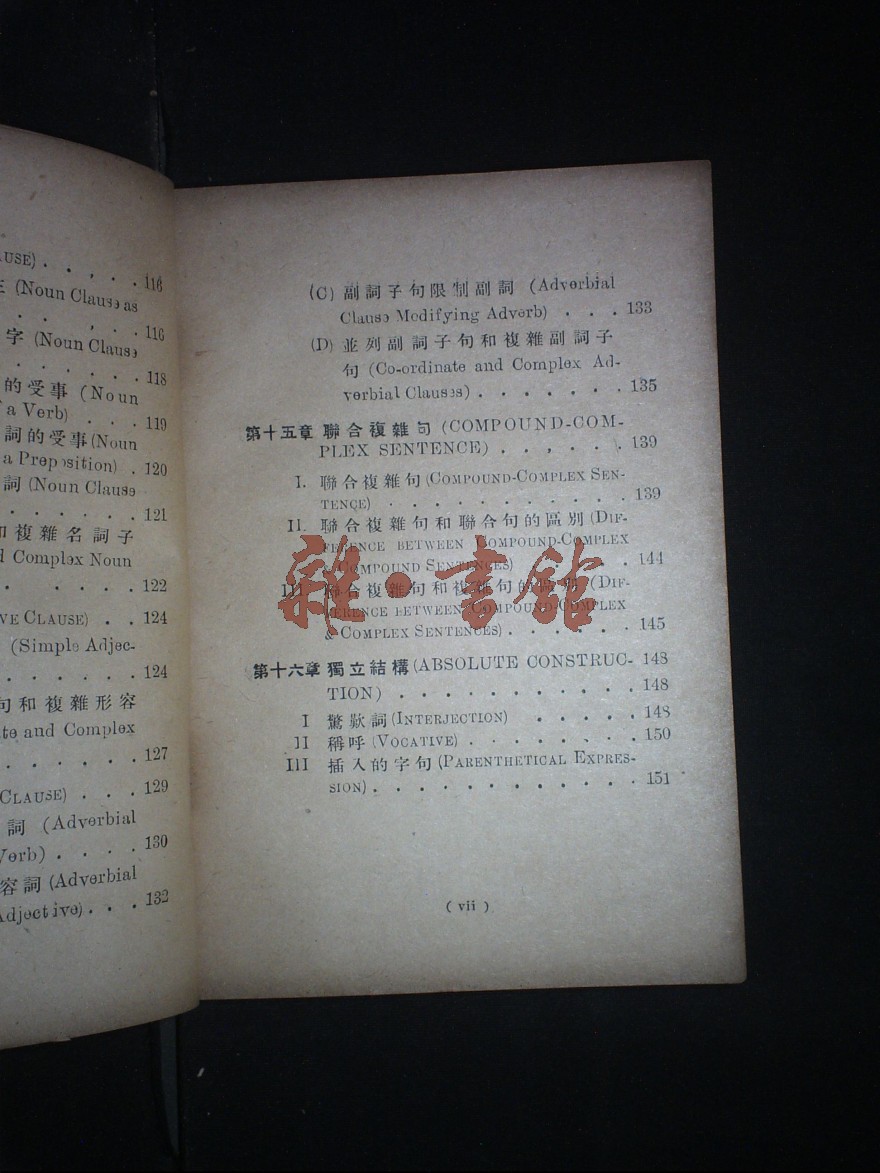 AUSE) . . . . . 116
(Noun Clause as
. . . . 116
字 (Noun Clause
. . . . . . 118
的受事 (Noun
a Verb) . . . 119
詞的受事 (Noun
a Preposition) . 120
詞 (Noun Clause
. . . . . . 121
和複雜名詞子
Complex Noun
. . . . . 122
VE CLAUSE) . . 124
(Simple Adjec-
. . . . . . 124
句和複雜形容
ate and Complex
. . . . . . 127
CLAUSE) . . . 129
詞 (Adverbial
Verb) . . . . 130
容詞 (Adverbial
Adjective) . . . 132
(C) 副詞子句限制副詞 (Adverbial
Clause Modifying Adverb) . . . 133
(D) 並列副詞子句和複雜副詞子
句 (Co-ordinate and Complex Ad-
verbial Clauses) . . . . . . . 135
第十五章 聯合複雜句 (COMPOUND-COM-
PLEX SENTENCE) . . . . . . 139
I. 聯合複雜句 (COMPOUND-COMPLEX SEN-
TENCE) . . . . . . . . . . . 139
II. 聯合複雜句和聯合句的區別 (DIF-
FERENCE BETWEEN COMPOUND-COMPLEX
& COMPOUND SENTENCES) . . . . 144
III. 聯合複雜句和複雜句的區別 (DIF-
FERENCE BETWEEN COMPOUND-COMPLEX
& COMPLEX SENTENCES) . . . . . . 145
雜·書館
第十六章 獨立結構 (ABSOLUTE CONSTRUC- 148
TION) . . . . . . . . . . 148
I 驚歎詞 (INTERJECTION) . . . . . 148
II 稱呼 (VOCATIVE) . . . . . . . 150
III 插入的字句 (PARENTHETICAL EXPRES-
SION) . . . . . . . . . . . . 151
( vii )